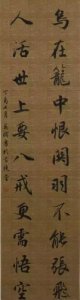 鸟在笼中恨关羽不能张飛
人活世上要八戒更需悟空